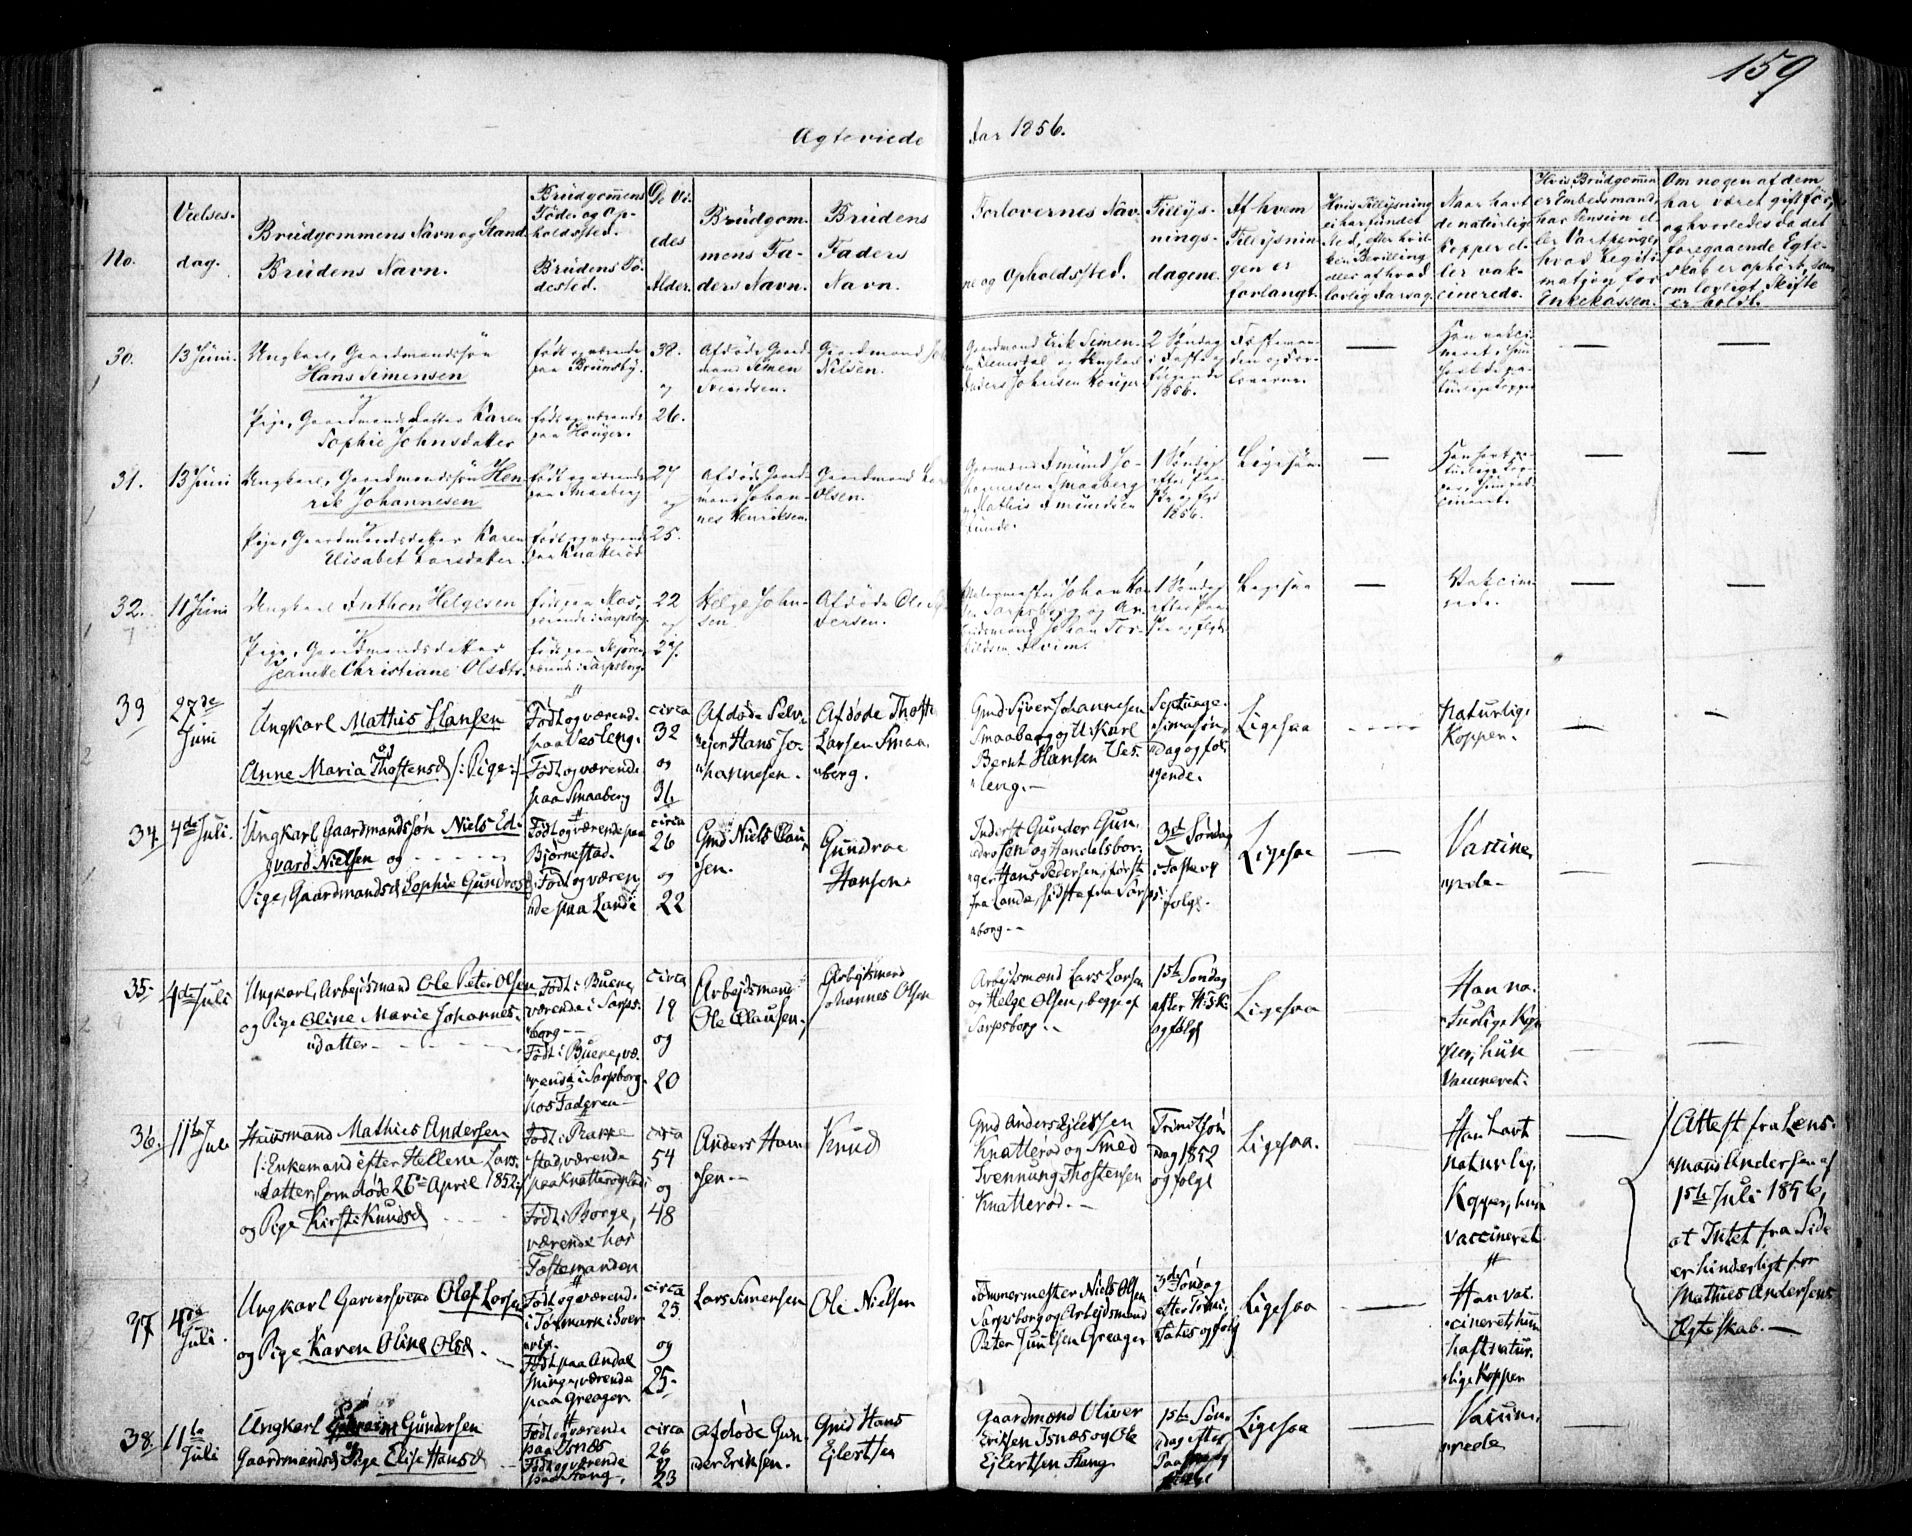 159
Ægteviede
Aar 1856.
No.
Vielses-
dag.
Brudgommens Navn og Stand
Brudens Navn.
Brudgommens
Føde- og Op-
holdssted.
Brudens Fø-
dested.
De Vi-
edes
Alder.
Brudgom-
mens Fa-
ders Navn.
Brudens
Faders
Navn.
Forlovernes Nav-
ne og Opholdssted.
Tillys-
nings-
dagene.
Af hvem
Tillysnin-
gen er
forlangt.
Hvis Tillysning
ei har fundet
Sted, efter hvil-
ken Bevilling
eller af hvad
lovlig Aarsag.
Naar havt
de naturlige
Kopper el-
ler vak-
cinerede.
Hvis Brudgommen
er Embedsmand,
har Pension el-
ler Vartpenge,
hvad Legiti-
mation for
Enkekassen.
Om nogen af dem
har været gift før,
og hvorledes da det
foregaaende Egte-
skab er ophørt, som
om lovligt Skifte
er holdt.
30.
13 Juni.
Ungkarl, Gaardmandssøn
Hans Simensen
og
Pige, Gaardmandsdatter Karen
Sophie Johnsdatter
født og værende
paa Brunsby.
født og værende
paa Hauger.
38.
og
26.
Afdøde Gaard-
mand Simen
Svendsen.
Gaardmand
Nilsen.
Gaardmand Erik Simen-
2 Søndag
i Faste og
følgende
1856.
Fæsteman-
den og For-
loverne.
31.
13 Juni
Ungkarl, Gaardmandssøn Hen-
rik Johannesen
Pige, Gaardmandsdatter Karen
Elisabet Larsdatter
født og værende
paa Smaaberg
født og værende
paa Knatterød
27
og
25.
Afdøde Gaard-
mand Johan-
nes Henriksen.
Gaardmand
Olsen.
Gaardmand Amund Jo-
hannesen Smaaberg
Mathis Amundsen
1 Søndag
efter Paa-
ske og flg.
1856.
Ligesaa.
32.
11 Juni
Ungkarl Anthon Helgesen
Pige, Gaardmandsdatter
Jeanette Christiane Olsdtr.
født paa Mos,
værende i Sarpsborg
født paa
værende i Sarpsborg.
22
og
27.
Helge John-
sen
Afdøde Ole
dersen.
Johan
Sarpsborg og Ar-
Johan Tor-
Alvim.
1 Søndag
efter Paa-
ske og flg.
Ligesaa
Vakcine-
rede.
39
27de
Juni
Ungkarl Mathis Hansen
og
Anne Maria Thostensd /: Pige :/
Født og værend.
paa Vesteng.
Født og værende
paa Smaaberg
circa
32
og
31
Afdøde Selv-
eier Hans Jo-
hannesen.
Afdøde Thost.
Larsen Smaa-
berg.
Gmd Syver Johannesen
Smaaberg og U.karl
Bernt Hansen Ves-
teng.—
Septuage-
simasøn-
dag og føl-
gende.
Ligesaa
Naturlige
Kopper.
34
4de Juli.
Ungkarl Gaardmandssøn Niels Ed-
vard Nielsen og
Pige, Gaardmandsd Sophie Gundrosd
Født og værende paa
Bjørnestad.
Født og væren-
de paa Lande
circa
26
og
22
Gmd Niels Clau-
sen.
Gundroe
Hansen.
Inderst Gunder Gun-
drosen og Handelsbor-
ger Hans Pedersen, første
fra Lande, sidste fra Sarps-
borg.—
3de Søndag
i Faste og
følge.
Ligesaa
Vaccine-
rede.
35
4de Juli
Ungkarl, Arbejdsmand Ole Peter Olsen
og Pige Oline Marie Johannes-
datter
Født i Buene,
værende i Sarps-
borg
Født i Buene, væ-
rende i Sarpsborg
hos Faderen
circa
19
og
20
Arbejdsmand
Ole Clausen.
Arbejdsmand
Johannes Olsen
Arbejdsmænd Lars Larsen
og Helge Olsen, begge af
Sarpsborg.
1ste Søndag
efter H. 3 K.
og følge
Ligesaa
Han na-
turlige Kop-
per, hun
Vaccineret.
36.
11te Juli
Huusmand Mathies Andersen
/: Enkemand efter Hellene Lars-
datter, som døde 26de April 1852 :/
og Pige Kirsti Knudsd
Født i Rakke-
stad, værende
paa Knatterødplads
Født i Borge,
værende hos
Fæstemanden
circa
54
og
48
Anders Han-
sen
Knud
Gmd Anders Ejlertsen
Knatterød og Smed
Svennung Thostensen
Knatterød.—
Trinitsøn-
dag 1852
og følge
Ligesaa.
Han havt
naturlig.
Kopper, hun
vaccineret
Attest fra Lens-
mand Andersen af
1ste Juli 1856,
at Intet fra Side
er hinderligt for
Mathies Andersens
Ægteskab.—
37
4de
Juli.
Ungkarl Garversvend Olof Larsen
og Pige Karen Oline Olsd.
Født og værend.
Født paa Andal
Minge, værende
paa Greager.
circa
25
og
25
Lars Simensen
Ole Nielsen
Tømmermester Niels Olsen
Sarpsborg og Arbejdsmand
Peter Juulsen Greager
3de Søndag
efter Trini-
tatis og følg
Ligesaa
Han vac-
cineret, hun
haft natur-
lige Kopper
38.
11te
Juli
Ungkarl Gundersen
Gaardmandsd Pige Elise Hansd
Født og værende
paa Isnæs
Født og værende
paa Hang.
circa
26
og
23
Afdøde Gun-
der Eriksen.
Gmd Hans
Ejlertsen
Gaardmænd Oliver
Eriksen Isnæs og Ole
Ejlertsen Hang
1ste Søn-
dag efter
Paaske og
følge
Ligesaa
Vaccine-
rede